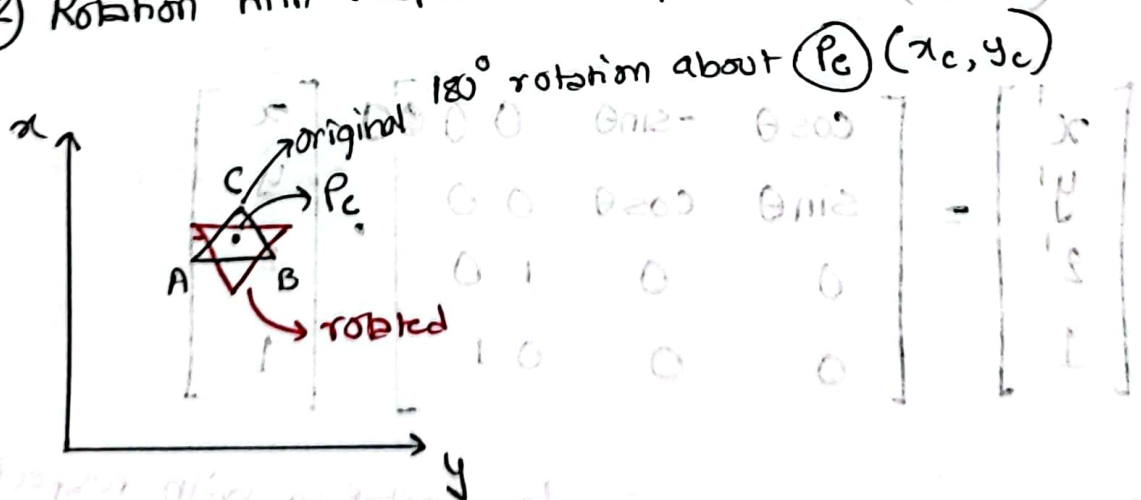 Rotation
180° rotation about Pc (xc, yc)
x
original
C
Pc
A
B
rotated
y